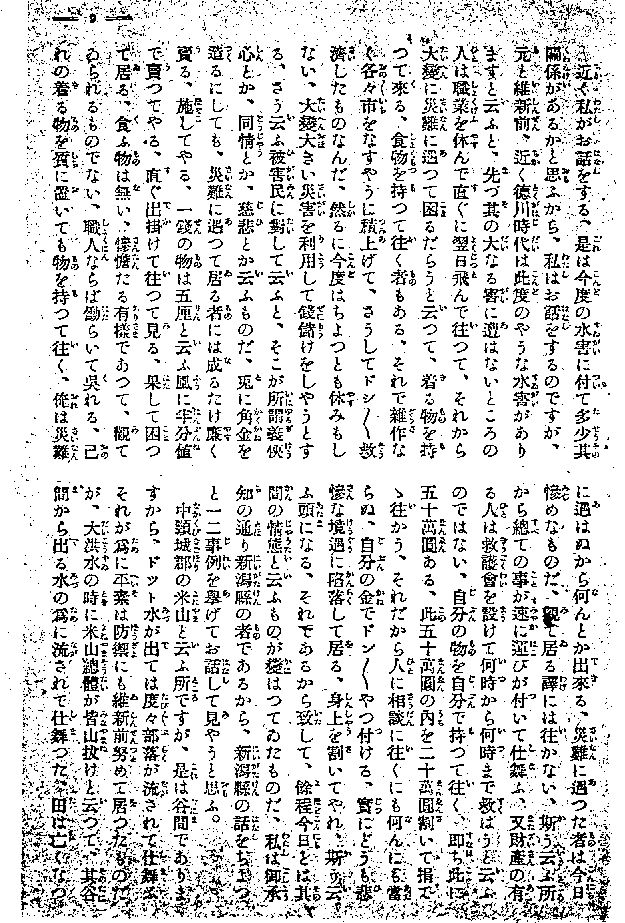 9
近く私がお話をする、是は今度の水害に付て多少其
關係があるかと思ふから、私はお話をするのですが、
元と維新前、近く德川時代は此度のやうな水害があり
ますと云ふと、先づ其の大なる害に遭はないところの
人は職業を休んで直ぐに翌日飛んで往つて、それから
大變に災難に遭つて困るだらうと云つて、着る物を持
つて來る、食物を持つて往く者もある、それで雜作な
く各々市をなすやうに積上げて、さうしてドシ〳〵救
濟したものなんだ、然るに今度はちよつとも休みもし
ない、大變大きい災害を利用して錢儲けをしやうとす
る、さう云ふ被害民に對して云ふと、そこが所謂義俠
心とか、同情とか、慈悲とか云ふものだ、兎に角金を
造るにしても、災難に遇つて居る者には成るたけ廉く
賣る、施してやる、一錢の物は五厘と云ふ風に半分値
で賣つてやる、直ぐ出掛けて往つて見る、果して困つ
て居る、食ふ物は無い、慘憺たる有樣であつて、觀て
ゐられるものでない、職人ならば働らいて呉れる、己
れの着る物を質に置いても物を持つて往く、俺は災難
に遇はぬから何んとか出來る、災難に遇つた者は今日
慘めなものだ、觀て居る譯には往かない、斯う云ふ所
から總ての事が速に運びが付いて仕舞ふ、又財產の有
る人は救護會を設けて何時から何時まで救はうと云ふ
のではない、自分の物を自分で持つて往く、卽ち此に
五十萬圓ある、此五十萬圓の内を二十萬圓割いて捐て
ゝ往かう、それだから人に相談に往くにも何んにも當
らぬ、自分の金でドン〳〵やつ付ける、實にどうも悲
慘な境遇に陷落して居る、身上を割いてやれ、斯う云
ふ頭になる、それであるから致して、餘程今日とは其
間の情態と云ふものが變はつてゐたものだ、私は御承
知の通り新潟縣の者であるから、新潟縣の話をちよつ
と一二事例を擧げてお話して見やうと思ふ。
中頸城郡の米山と云ふ所ですが、是は谷間でありま
すから、ドツト水が出ては度々部落が流されて仕舞ふ
それが爲に平素は防禦にも維新前努めて居つたものだ
が、大洪水の時に米山總體が皆山拔けと云つて、其谷
間から出る水の爲に流されて仕舞つた、田は亡くなつ